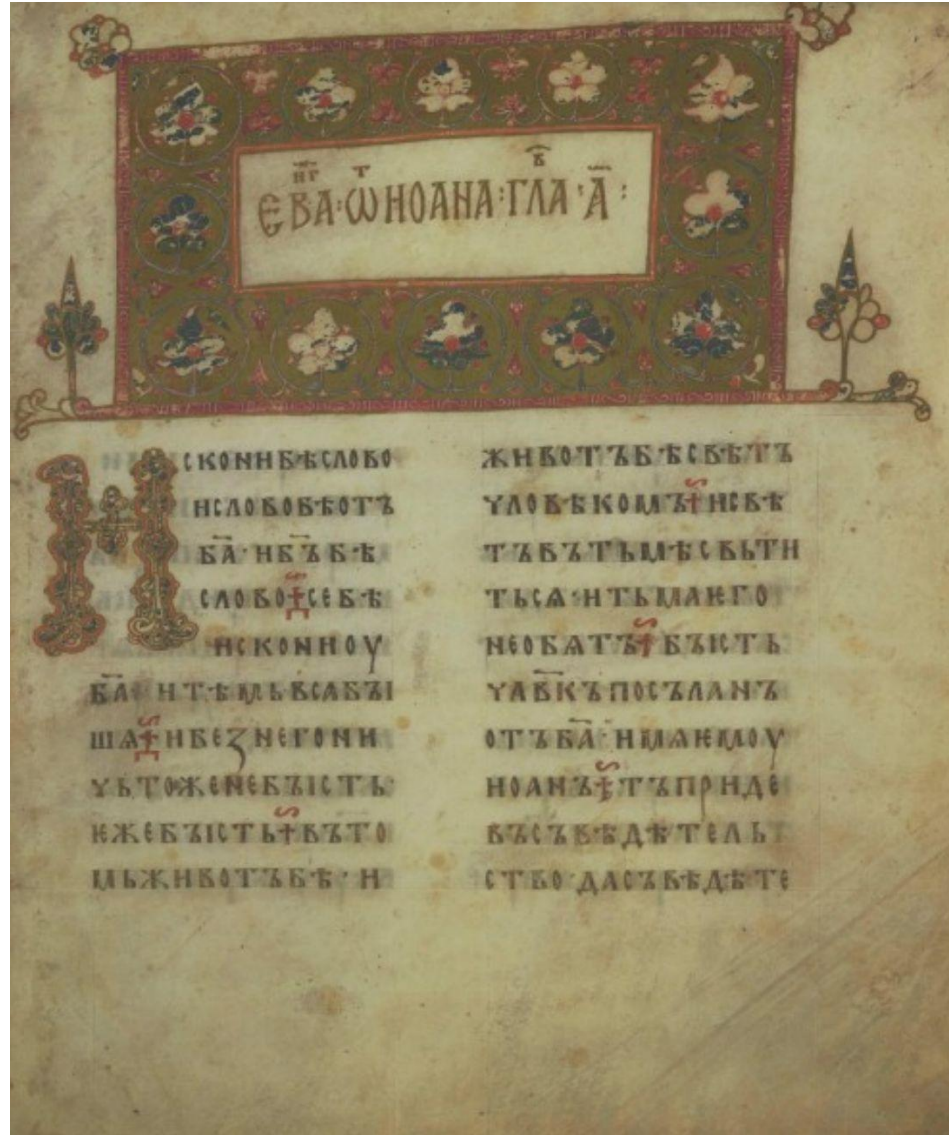 ЄВА҃НГ · ѾТ ИОАНА · ГЛАВ҃ · А҃ :
ИСКОНИБѢСЛОВО
ИСЛОВОБѢОТЪ
БА҃ · ИБ҃ЪБѢ
СЛОВО ⁘ СЕБѢ
ИСКОНИОУ
БА҃ · ИТѢМЬВСАБЫ
ШѦ ⁘ ИБЕꙁНЕГОНИ
ЧЬТОЖЕНЕБЪІСТЬ ·
ѤЖЕБЪІСТЬ ⁘ ВЪТО
МЬЖИВОТЪБѢ · И
ЖИВОТЪБѢСВѢТЪ
ЧЛОВѢКОМЪ ⁘ ИСВѢ
ТЪВЪТЬМѢСВЬТИ
ТЬСѦ · ИТЬМАѤГО
НЕОБѦТЪ ⁘ БЪІСТЬ
ЧЛВ҃КЪПОСЪЛАНЪ
ОТЪБА҃ · ИМѦѤМОУ
ИОАНЪ ⁘ ТЪПРИДЕ
ВЪСЪВѢДѢТЕЛЬ
СТВО · ДАСЪВѢДѢТЕ